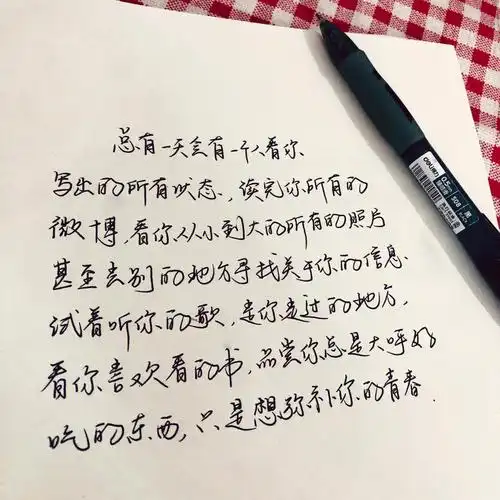 总有一天会有一个人看你
写出的所有状态，读完你所有的
微博，看你从小到大的所有的照片
甚至去别的地方寻找关于你的信息.
试着听你的歌，走你走过的地方，
看你喜欢看的书，品尝你总是大呼好
吃的东西，只是想弥补你的青春.
deli/得力
0.5mm
S08
黑